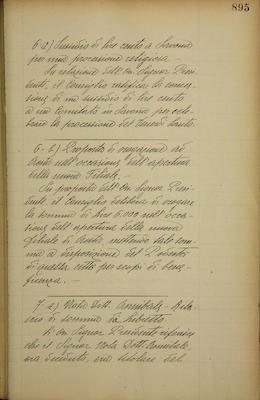 895
6·a) Sussidio di lire cento a Savona
per una processione religiosa. —
Su relazione dell'On. Signor Presi-
dente, il Consiglio ratifica la conces-
sione di un sussidio di lire cento
a un Comitato in Savona per cele-
brare la processione del Venerdì Santo.
6 - b) Proposta di erogazione ad
nell'occasione dell'apertura
della nuova Filiale. —
Su proposta dell'On. Signor Presi-
dente, il Consiglio delibera di erogare
la somma di Lire 5.000 nell'occa-
sione dell'apertura della nuova
Filiale di mettendo detta som-
ma a disposizione del
di quella città per scopi di bene-
ficenza. —
7 a) Dott. Annibale - Rila-
scio di somma da libretto.
L'On. Signor Presidente riferisce
che il Signor Dott. Annibale,
ora deceduto, era titolare del